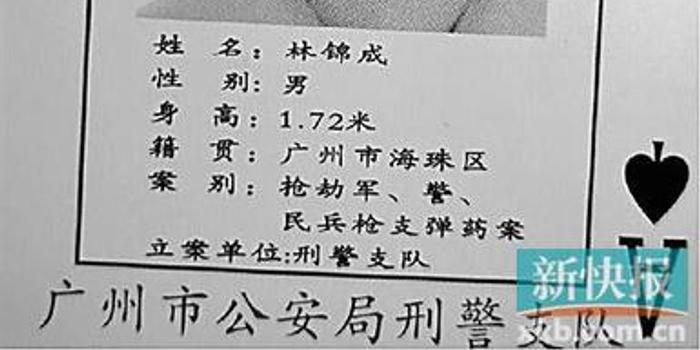 姓 名：林锦成
性 别：男
身 高：1.72米
籍 贯：广州市海珠区
案 别：抢劫军、警、
民兵枪支弹药案
立案单位:刑警支队
广州市公安局刑警支队
A
新快报
xkb.com.cn